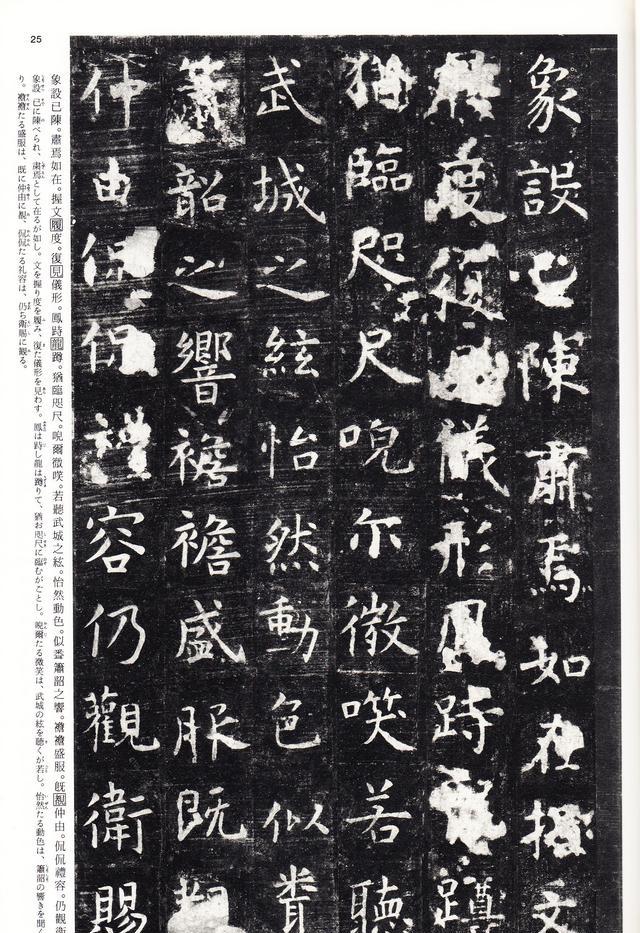 25
象設已陳肅焉如在握文
度復儀形鳳跱蹲
猶臨咫尺唲尔微㗛若聽
武城之絃怡然動色似
簫韶之響襜襜盛服既
仲由侃侃禮容仍觀衛賜
象設已陳。肅焉如在。握文履度。復見儀形。鳳跱龍蹲。猶臨咫尺。唲爾微㗛。若聽武城之絃。怡然動色。似簫韶之響。襜襜盛服。既覩仲由。侃侃禮容。仍觀衛
象設 已に陳べられ、粛焉として在るが如し。文を握り度を履み、復た儀形を見わす。鳳は跱し龍は蹲りて、猶お咫尺に臨むがごとし。唲爾たる微笑は、武城の絃を聴くが若し。怡然たる動色は、簫韶の響きを聞く
り。襜襜たる盛服は、既に仲由に覩、侃侃たる礼容は、仍ち衛賜に観る。